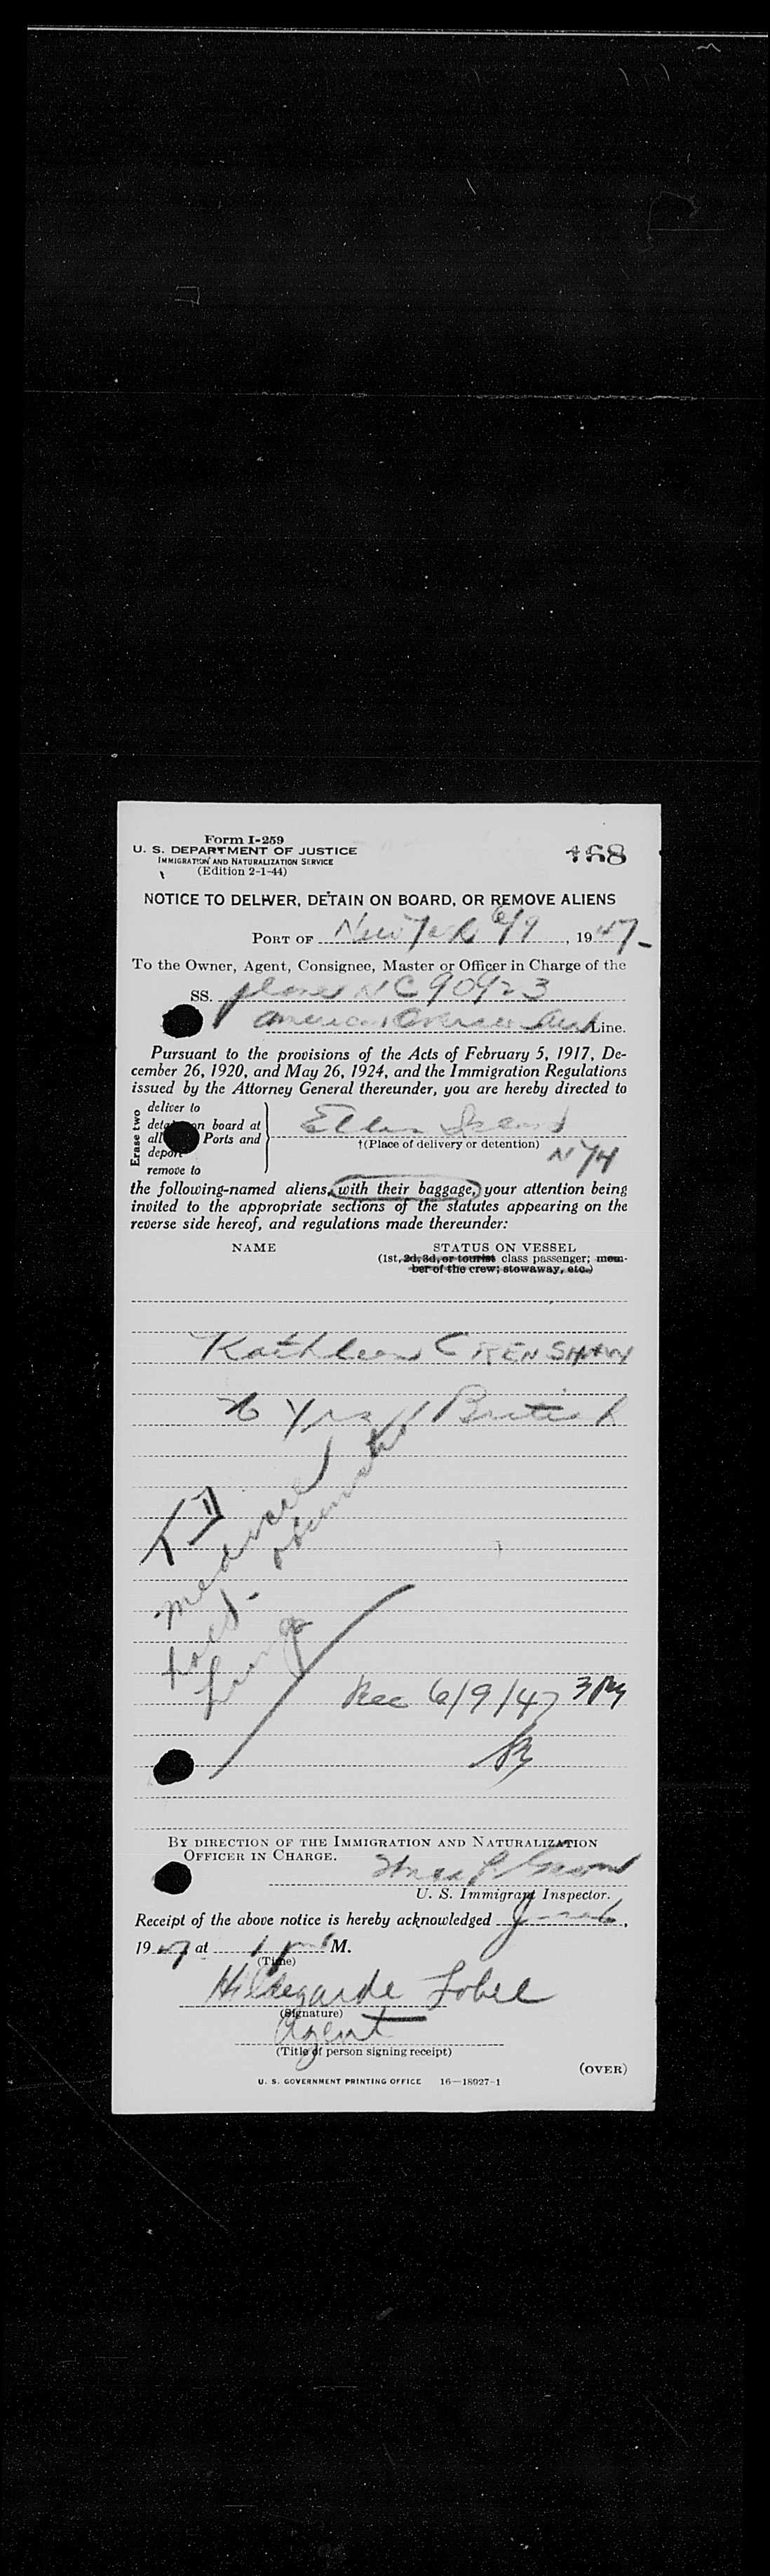 Form I-259
U. S. DEPARTMENT OF JUSTICE
IMMIGRATION AND NATURALIZATION SERVICE
(Edition 2-1-44)
468
NOTICE TO DELIVER, DETAIN ON BOARD, OR REMOVE ALIENS
PORT OF New York 6/9, 1947
To the Owner, Agent, Consignee, Master or Officer in Charge of the
SS. plane NC90923
American Overseas Line.
Pursuant to the provisions of the Acts of February 5, 1917, De-
cember 26, 1920, and May 26, 1924, and the Immigration Regulations
issued by the Attorney General thereunder, you are hereby directed to
Erase two
deliver to
on board at
Ports and
remove to
Ellis Island
†(Place of delivery or detention)
NYH
the following-named aliens, with their baggage, your attention being
invited to the appropriate sections of the statutes appearing on the
reverse side hereof, and regulations made thereunder:
NAME STATUS ON VESSEL
(1st, 2d, 3d, or tourist class passenger; mem-
ber of the crew; stowaway, etc.)
Kathleen CRENSHAW
Yrs British
medical
hold -
Rec 6/9/47 3 PM
BY DIRECTION OF THE IMMIGRATION AND NATURALIZATION
OFFICER IN CHARGE.
U. S. Immigrant Inspector.
Receipt of the above notice is hereby acknowledged
1947 at 1 p M.
(Time)
Hildegarde Lobel
(Signature)
Agent
(Title of person signing receipt)
(OVER)
U. S. GOVERNMENT PRINTING OFFICE 16—18927-1